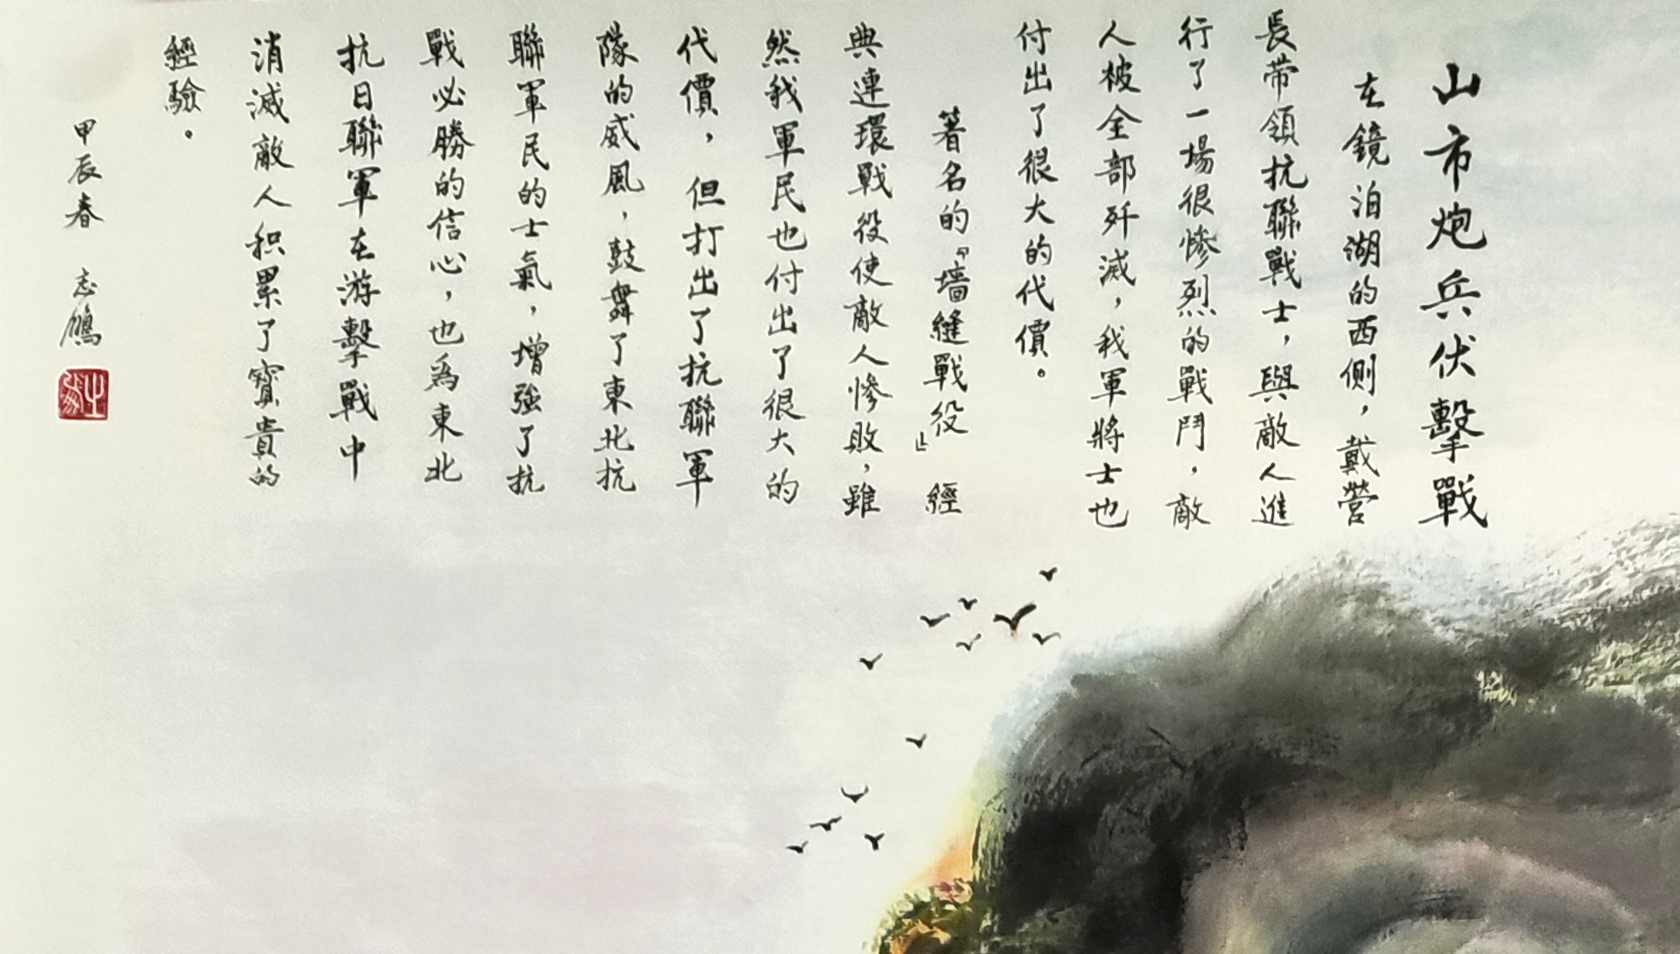 山市炮兵伏擊戰
在鏡泊湖的西側，戴營
長带領抗聯戰士，與敵人進
行了一場很惨烈的戰鬥，敵
人被全部歼滅，我軍將士也
付出了很大的代價。
著名的『墙縫戰役』經
典連環戰役使敵人惨敗，雖
然我軍民也付出了很大的
代價，但打出了抗聯軍
隊的威風，鼓舞了東北抗
聯軍民的士氣，增強了抗
戰必勝的信心，也為東北
抗日聯軍在游擊戰中
消滅敵人积累了寶貴的
經驗。
甲辰春 志鵬